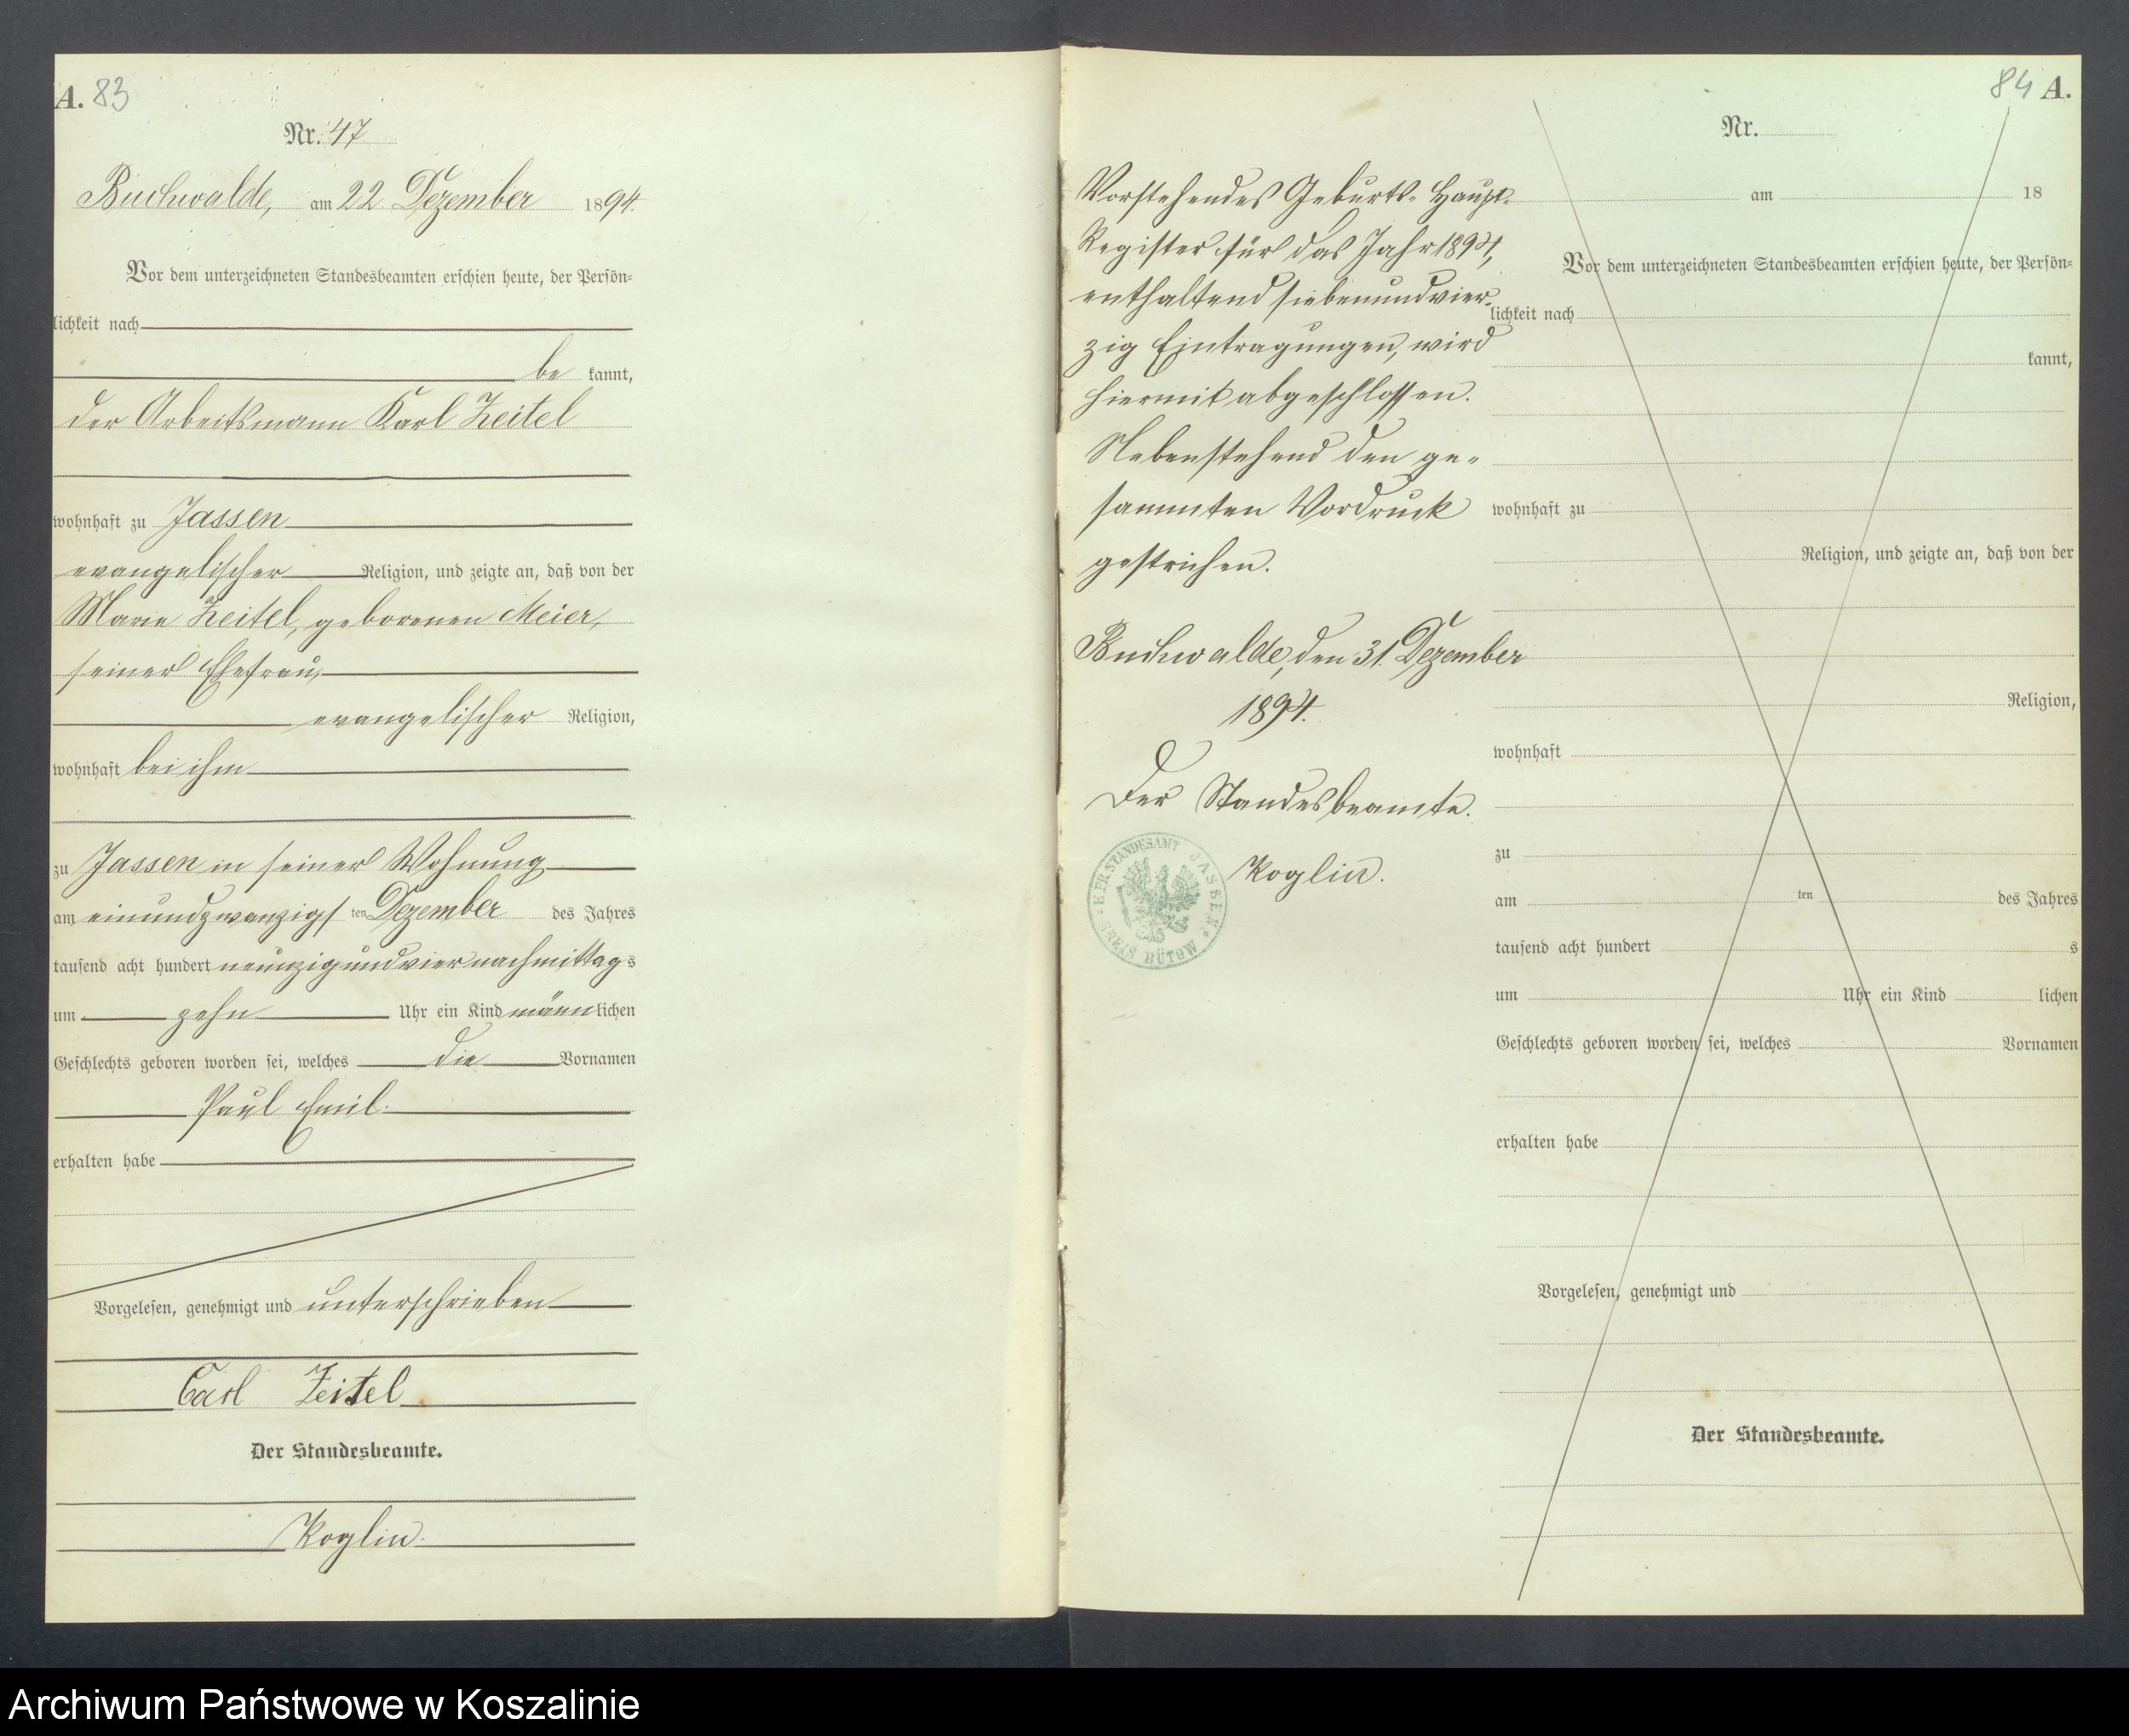 A. 83
Nr. 47
Buchwalde, am 22 Dezember 1894.
Vor dem unterzeichneten Standesbeamten erschien heute, der Persön-
lichkeit nach
be kannt,
der Arbeitsmann Karl Zeitel
wohnhaft zu Jassen
evangelischer Religion, und zeigte an, daß von der
Marie Zeitel, geborenen Meier,
seiner Ehefrau,
evangelischer Religion,
wohnhaft bei ihm
zu Jassen in seiner Wohnung
am einundzwanzigs ten Dezember des Jahres
tausend acht hundert neunzig und vier nachmittag s
um zehn Uhr ein Kind männ lichen
Geschlechts geboren worden sei, welches die Vornamen
Paul Emil.
erhalten habe
Vorgelesen, genehmigt und unterschrieben
Carl Zeitel
Der Standesbeamte.
Koglin.
Vorstehendes Geburts-Haupt-
Register für das Jahr 1894,
enthaltend siebenundvier-
zig Eintragungen, wird
hiermit abgeschlossen.
Nebenstehend den ge-
sammten Vordruck
gestrichen.
Buchwalde, den 31. Dezember
1894.
Der Standesbeamte.
Koglin.
KPR STANDESAMT JASSEN
KREIS BÜTOW
84 A.
Nr.
am 18
Vor dem unterzeichneten Standesbeamten erschien heute, der Persön-
lichkeit nach
kannt,
wohnhaft zu
Religion, und zeigte an, daß von der
Religion,
wohnhaft
zu
am ten des Jahres
tausend acht hundert s
um Uhr ein Kind lichen
Geschlechts geboren worden sei, welches Vornamen
erhalten habe
Vorgelesen, genehmigt und
Der Standesbeamte.
Archiwum Państwowe w Koszalinie